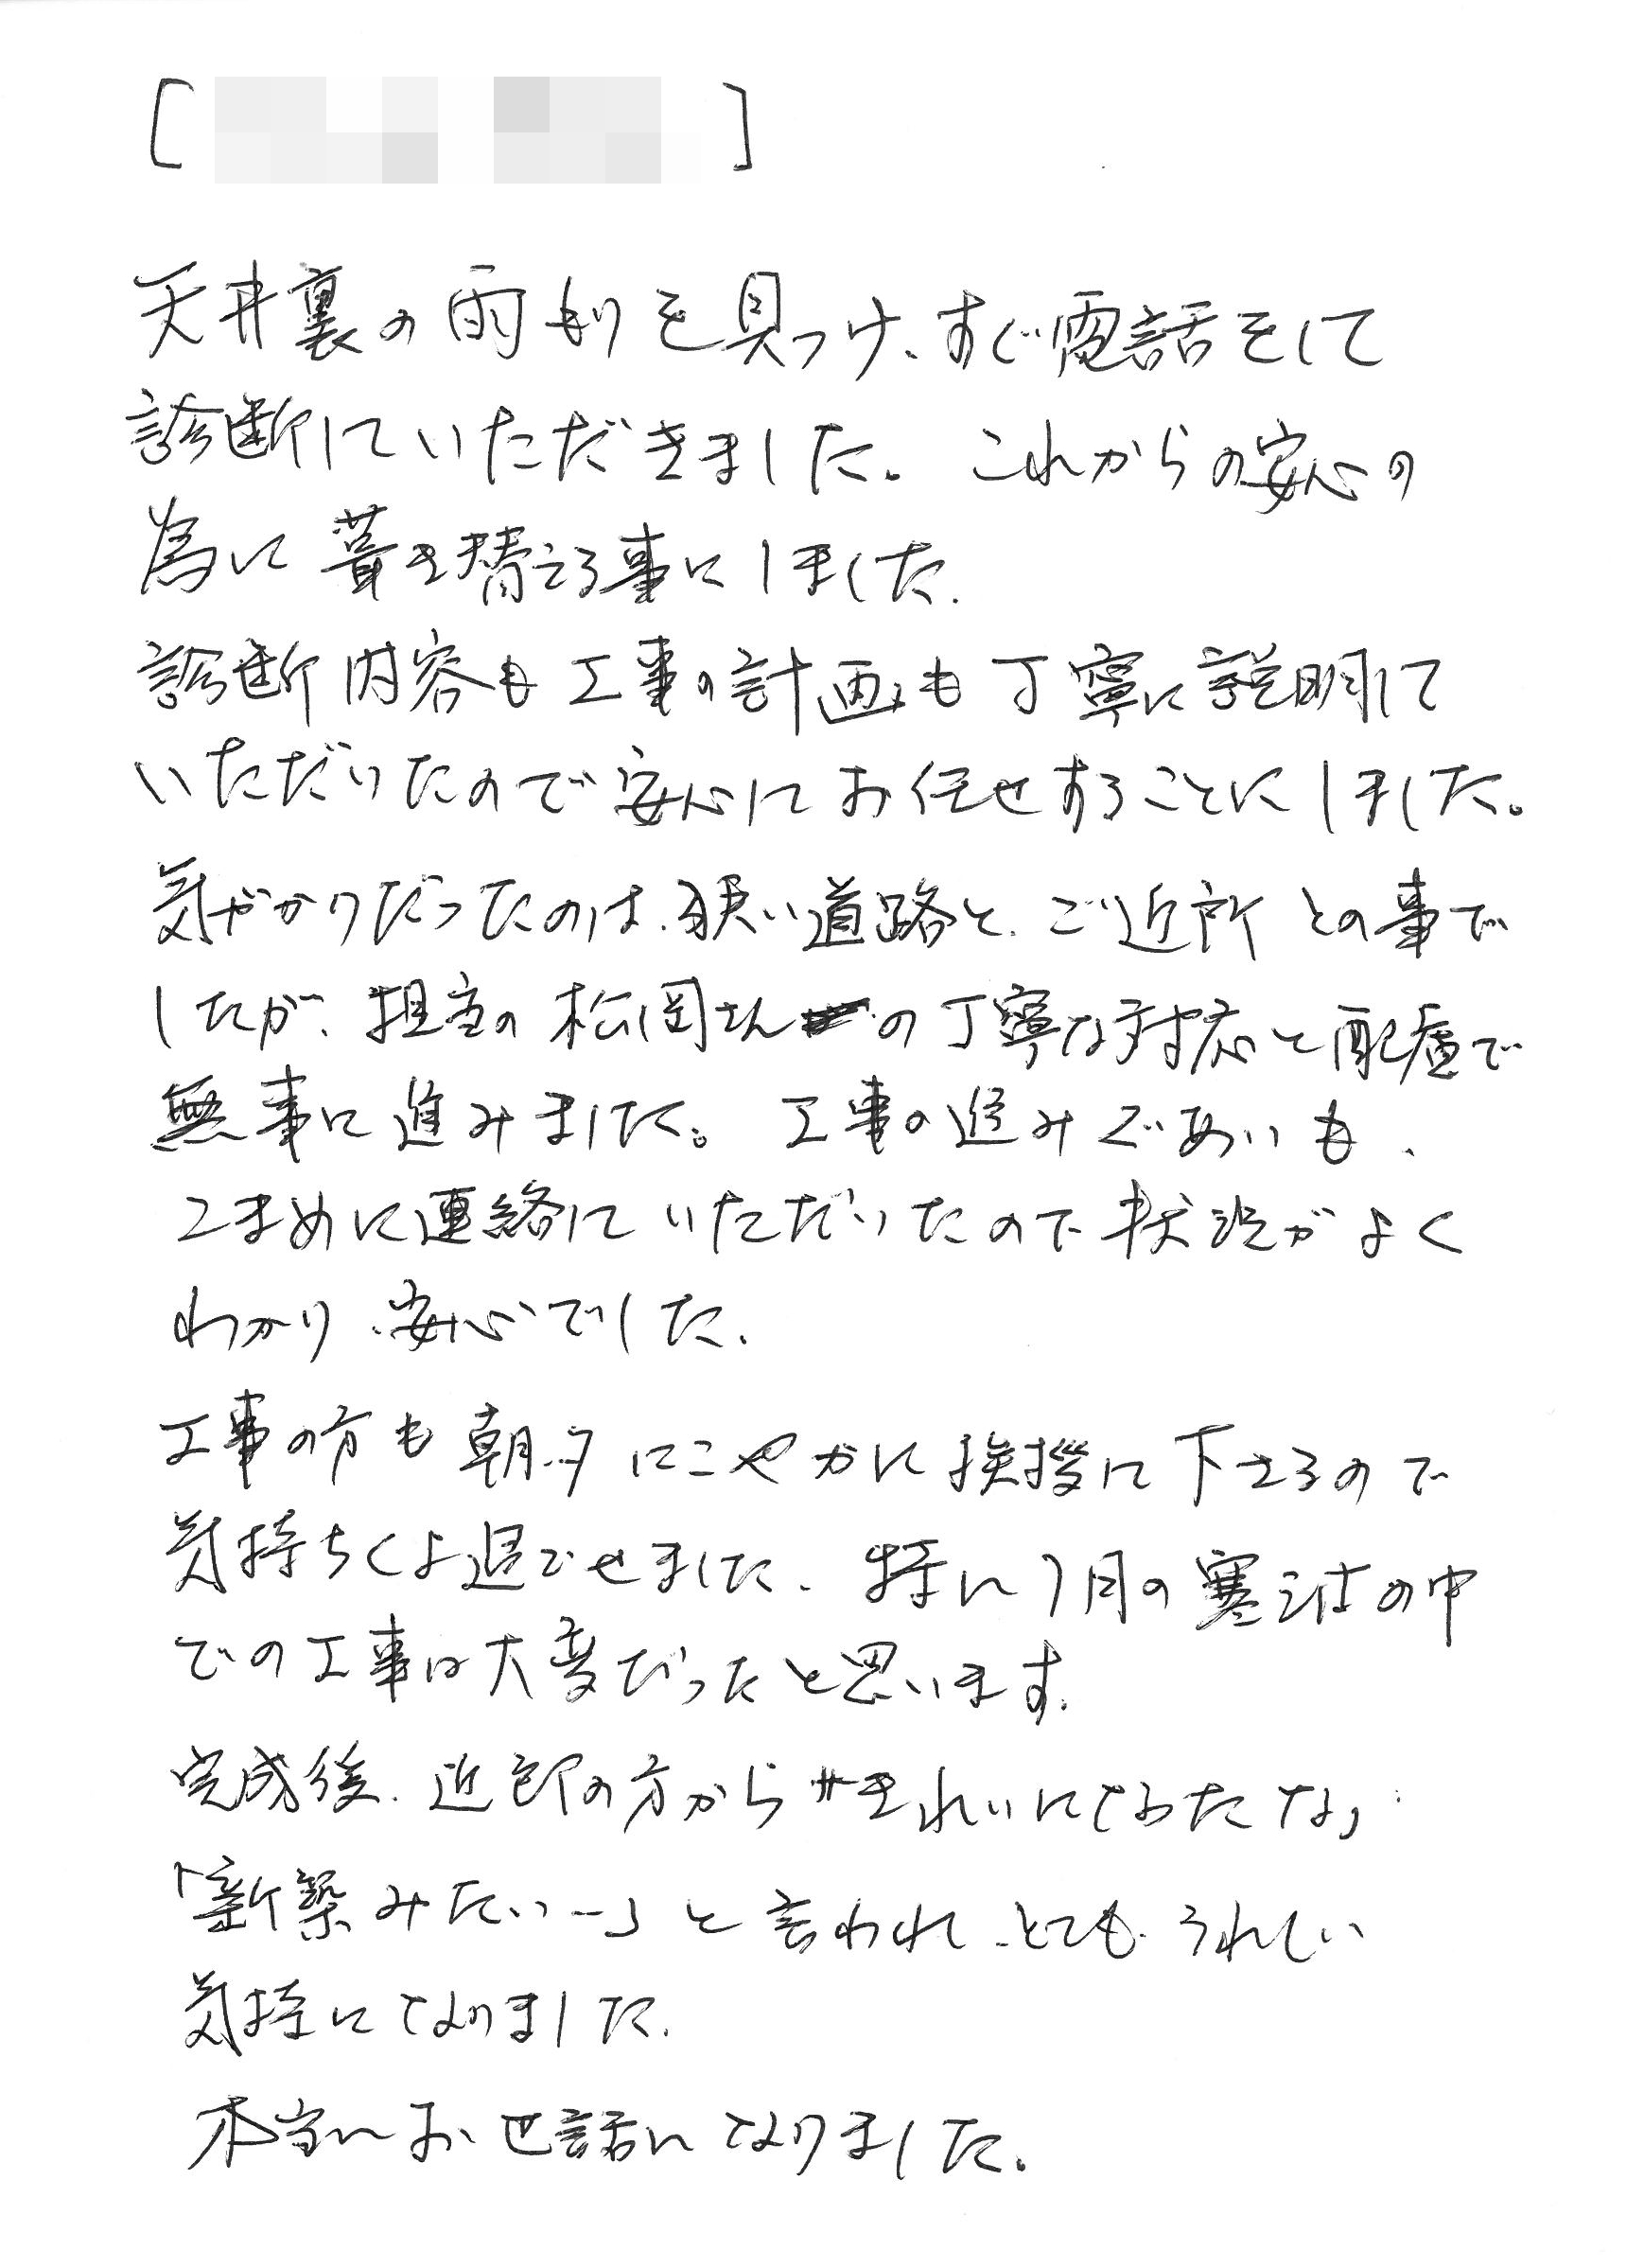 [ ]
天井裏の雨もりを見つけ、すぐ電話をして
診断していただきました。これからの安心の
為に葺き替える事にしました.
診断内容も工事の計画も丁寧に説明して
いただいたので安心してお任せすることにしました。
気がかりだったのは、狭い道路と、ご近所との事で
したが、担当の松岡さんの丁寧な対応と配慮で
無事に進みました。工事の進みぐあいも、
こまめに連絡していただいたので状況がよく
わかり、安心でした.
工事の方も朝、夕にこやかに挨拶して下さるので
気持ちくよ過ごせました、特に1月の寒波の中
での工事は大変だったと思います.
完成後、近郊の方から「きれいになったな」
「新築みたいー」と言われ、とても、うれしい
気持になりました.
本当にお世話になりました。